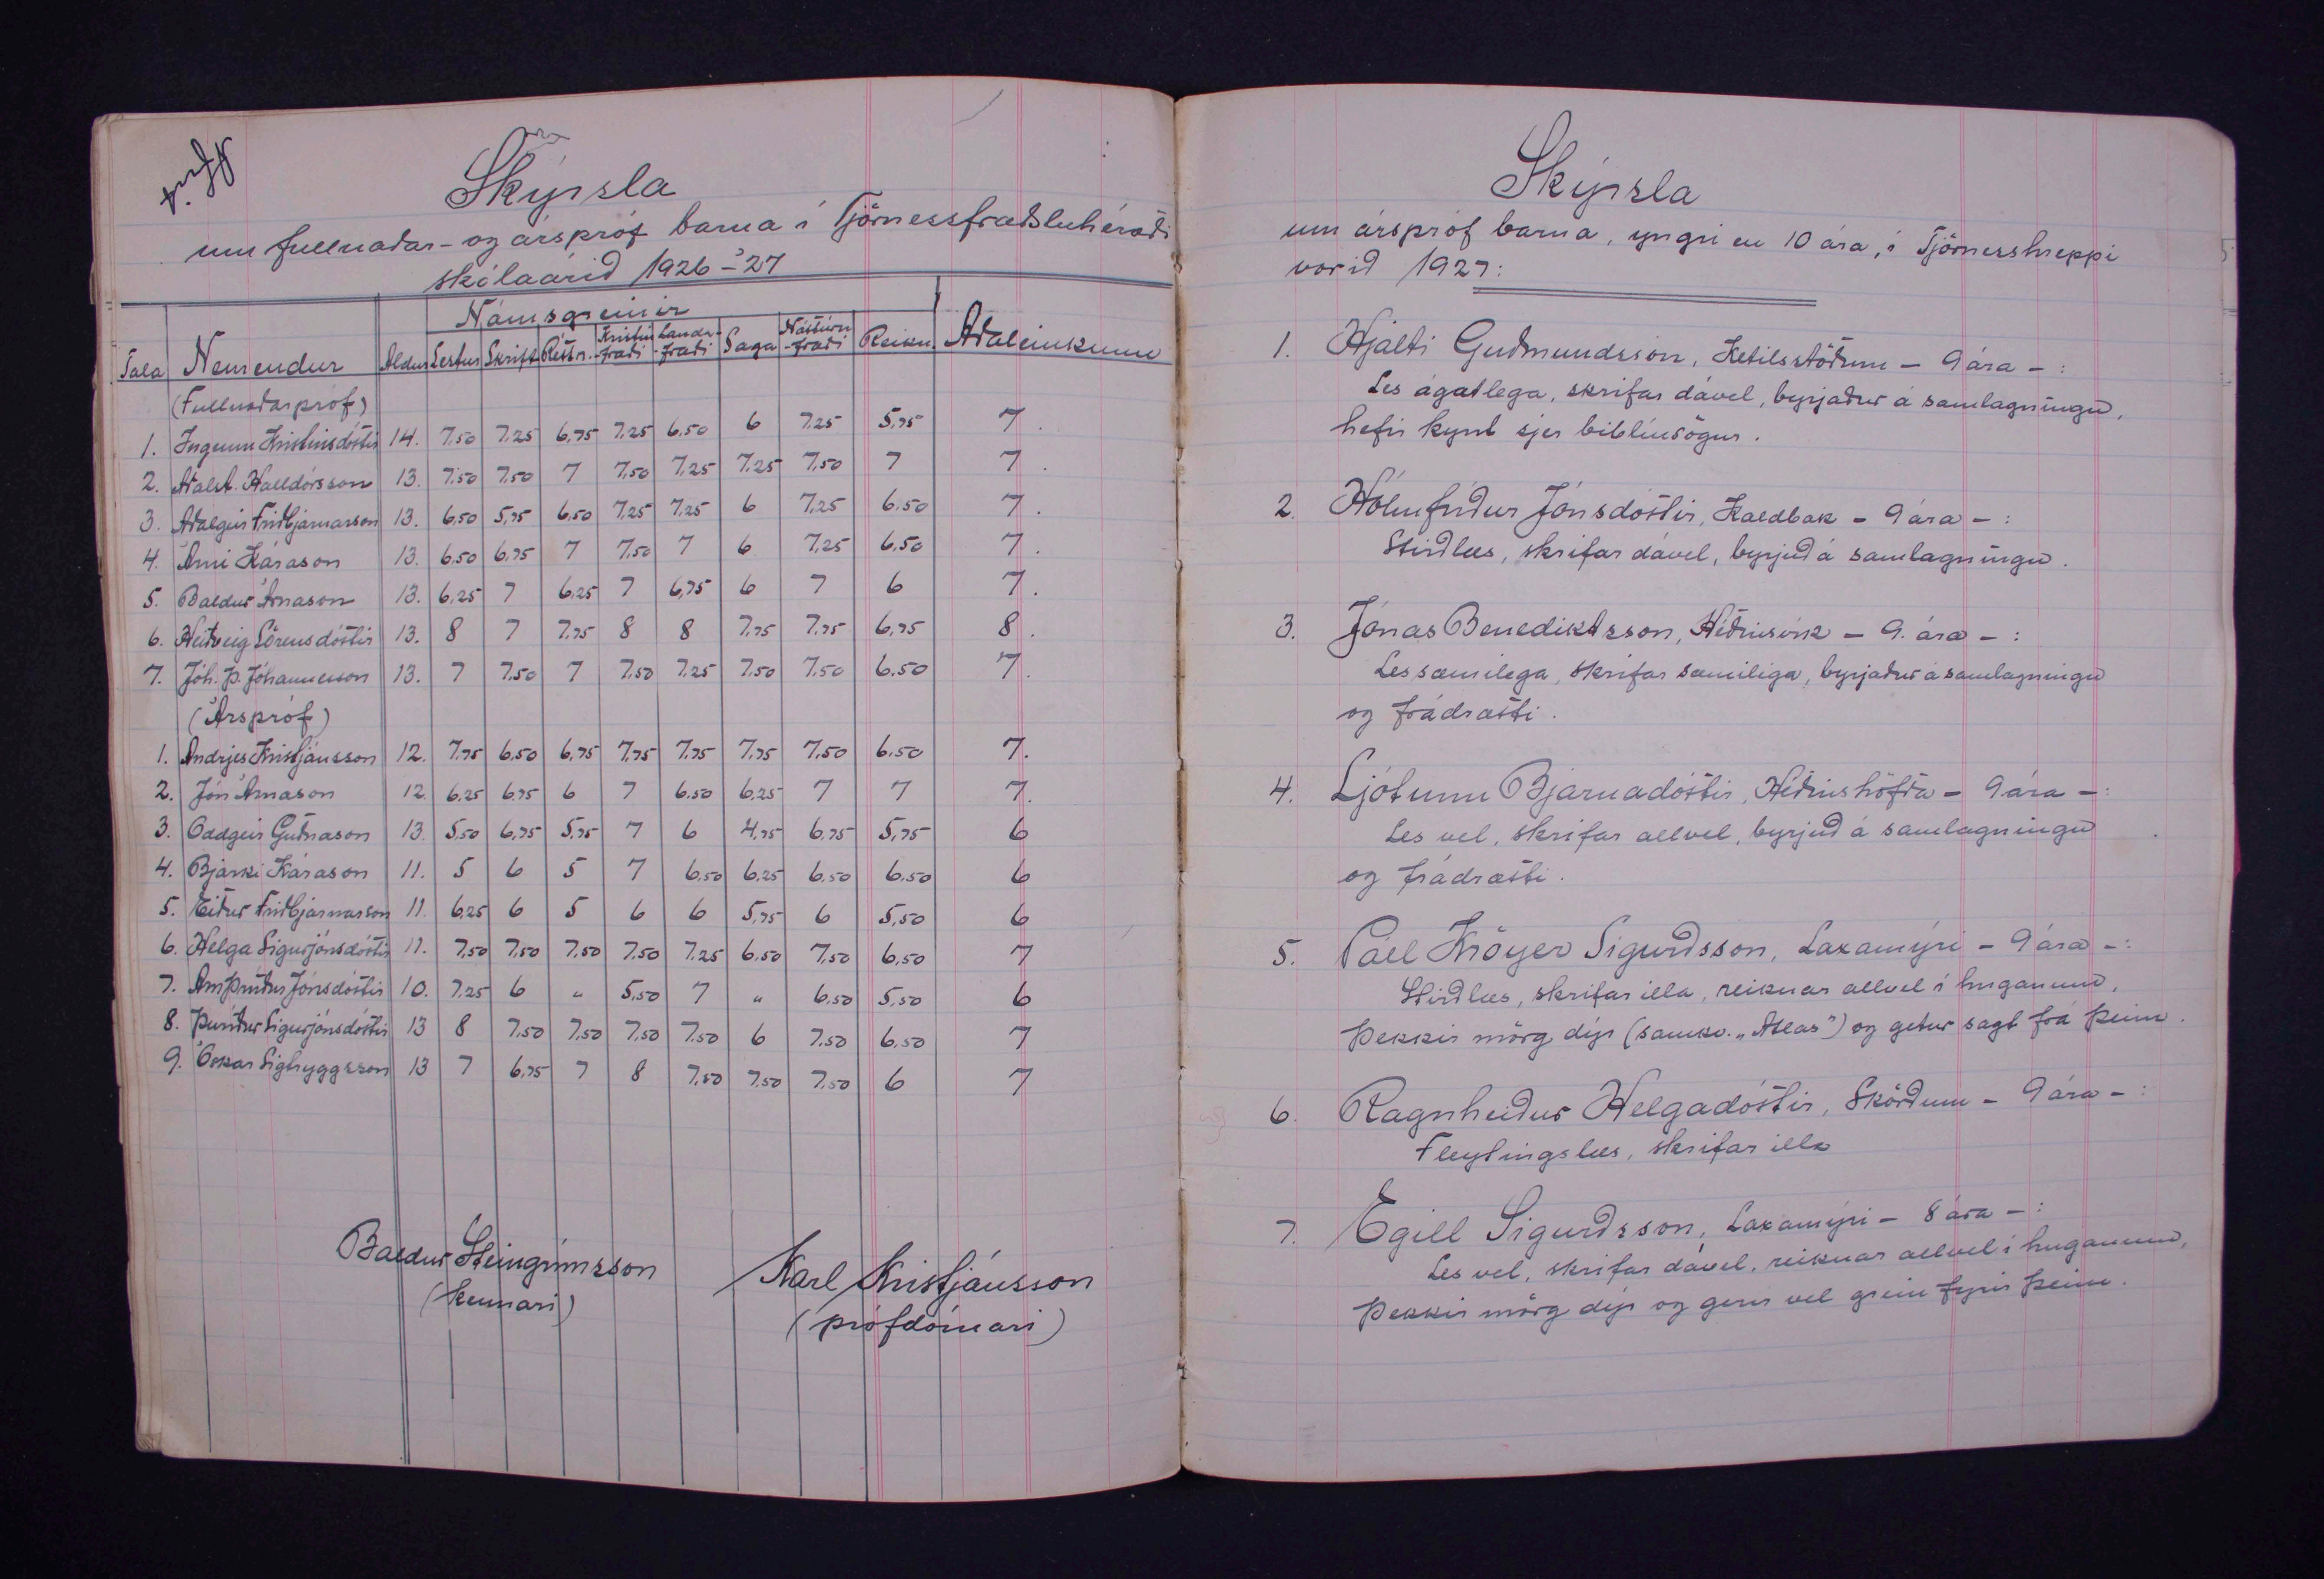 Skýrsla
um fullnaðar- og árspróf barna í Tjörnessfræðsluhéraði
skólaárið 1926-'27
Námsgreinir
Tala Nemendur Aldur Lestur Skrift Réttr. Kristin-fræði Landa-fræði Saga Náttúru-fræði Reikn. Aðaleinkunn
(Fullnaðarpróf)
1. Ingunn Kristinsdóttir 14. 7,50 7,25 6,75 7,25 6,50 6 7,25 5,75 7.
2. Aðalst. Halldórsson 13. 7,50 7,50 7 7,50 7,25 7,25 7,50 7 7.
3. Aðalgeir Friðbjarnarson 13. 6,50 5,75 6,50 7,25 7,25 6 7,25 6,50 7.
4. Árni Kárason 13. 6,50 6,75 7 7,50 7 6 7,25 6,50 7.
5. Baldur Árnason 13. 6,25 7 6,25 7 6,75 6 7 6 7.
6. Heiðveig Sörensdóttir 13. 8 7 7,75 8 8 7,75 7,75 6,75 8.
7. Jóh. Þ. Jóhannesson 13. 7 7,50 7 7,50 7,25 7,50 7,50 6,50 7.
(Árspróf)
1. Andrjes Kristjánsson 12. 7,75 6,50 6,75 7,75 7,75 7,75 7,50 6,50 7.
2. Jón Árnason 12. 6,25 6,75 6 7 6,50 6,25 7 7 7.
3. Oddgeir Guðnason 13. 5,50 6,75 5,75 7 6 4,75 6,75 5,75 6
4. Bjarki Kárason 11. 5 6 5 7 6,50 6,25 6,50 6,50 6
5. Eiður Friðbjarnarson 11. 6,25 6 5 6 6 5,75 6 5,50 6
6. Helga Sigurjónsdóttir 11. 7,50 7,50 7,50 7,50 7,25 6,50 7,50 6,50 7
7. Arnþrúður Jónsdóttir 10. 7,25 6 „ 5,50 7 „ 6,50 5,50 6
8. Þuríður Sigurjónsdóttir 13 8 7,50 7,50 7,50 7,50 6 7,50 6,50 7
9. Óskar Sigtryggsson 13 7 6,75 7 8 7,50 7,50 7,50 6 7
Baldur Steingrímsson
(kennari)
Karl Kristjánsson
(prófdómari)
Skýrsla
um árspróf barna, yngri en 10 ára, í Tjörnesshreppi
vorið 1927:
1. Hjalti Guðmundsson, Ketilsstöðum - 9 ára - :
Les ágætlega, skrifar dável, byrjaður á samlagningu,
hefir kynt sjer biblíusögur.
2. Hólmfríður Jónsdóttir, Kaldbak - 9 ára - :
Stirðlæs, skrifar dável, byrjuð á samlagningu.
3. Jónas Benediktsson, Héðinsvík - 9. ára - :
Les sæmilega, skrifar sæmiliga, byrjaður á samlagningu
og frádrætti.
4. Ljótunn Bjarnadóttir, Héðinshöfða - 9 ára - :
Les vel, skrifar allvel, byrjuð á samlagningu
og frádrætti.
5. Páll Kröyer Sigurðsson, Laxamýri - 9 ára - :
Stirðlæs, skrifar illa, reiknar allvel í huganum,
Þekkir mörg dýr (samkv. „Atlas") og getur sagt frá þeim.
6. Ragnheiður Helgadóttir, Skörðum - 9 ára - :
Fleytingslæs, skrifar illa
7. Egill Sigurðsson, Laxamýri - 8 ára - :
Les vel, skrifar dável, reiknar allvel í huganum,
Þekkir mörg dýr og gerir vel grein fyrir þeim.